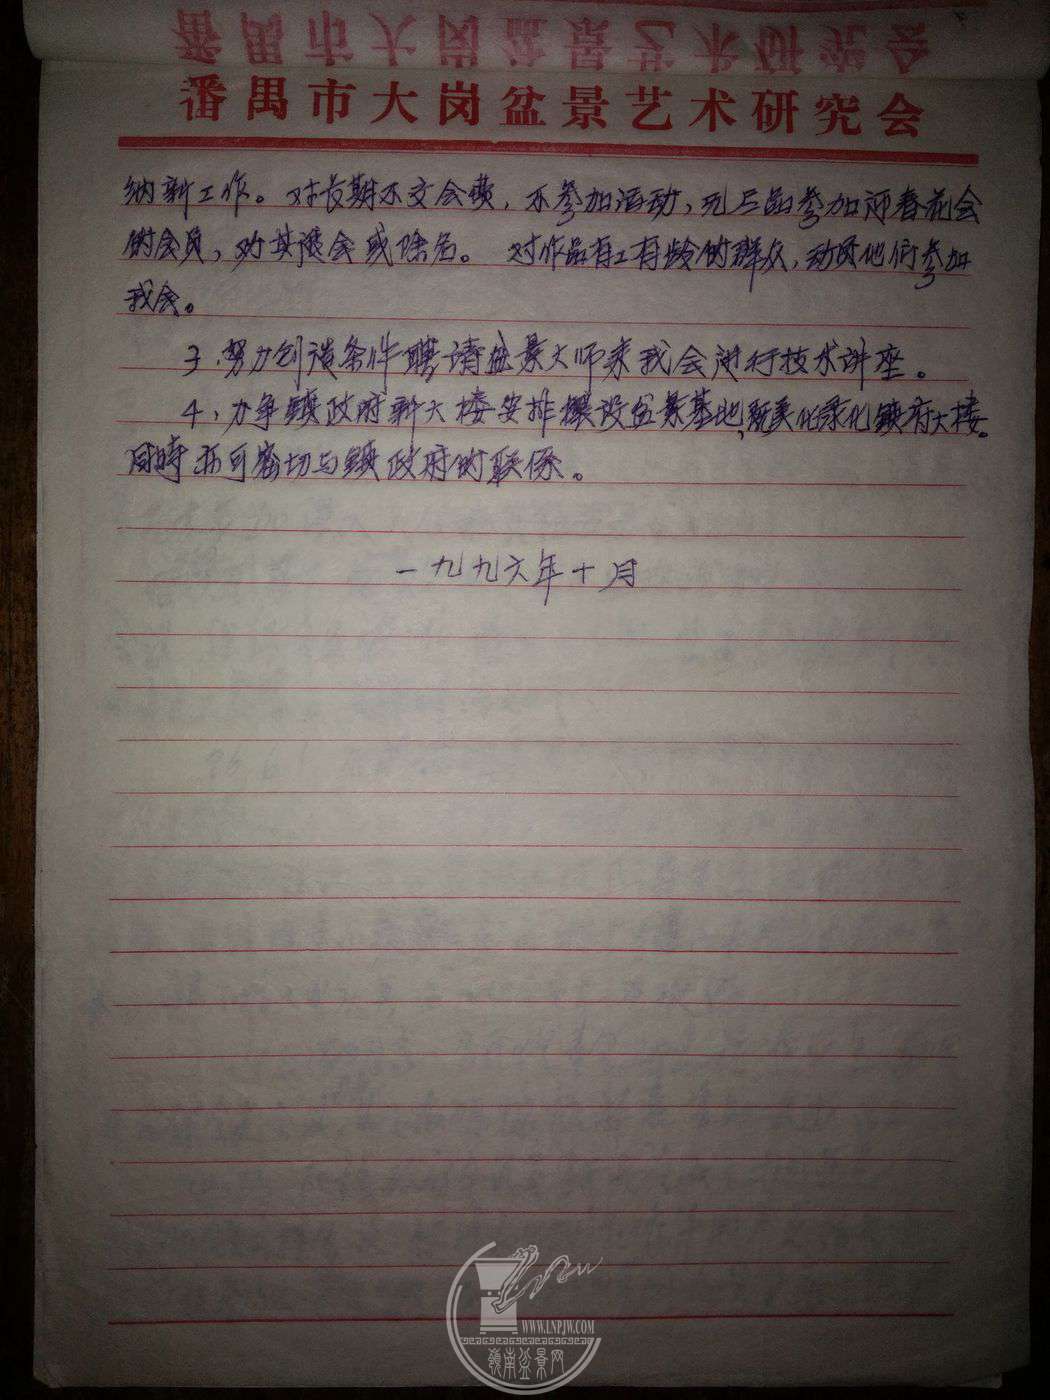 番禺市大岗盆景艺术研究会
番禺市大岗盆景艺术研究会
纳新工作。对长期不交会费，不参加活动，无三盆参加迎春花会
的会员，对其退会或除名。对作品有工有龄的群众，动员他们参加
我会。
3.努力创造条件聘请盆景大师来我会进行技术讲座。
4、力争镇政府新大楼安排摆设盆景基地，既美化绿化镇府大楼。
同时亦可密切与镇政府的联系。
一九九六年十月
WWW.LNPJW.COM
嶺南盆景网